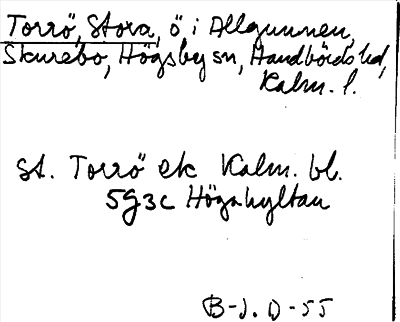 Torrö, Stora, ö i Allgunnen,
Skurebo, Högsby sn, Handbörds hd,
Kalm. l.
St. Torrö ek Kalm. bl.
5g3c Högahyltan
B-J. D-55